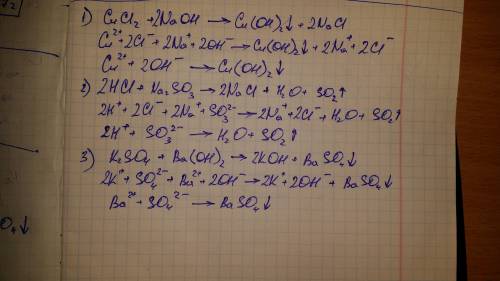 1) CuCl₂ + 2NaOH → Cu(OH)₂↓ + 2NaCl
Cu²⁺ + 2Cl⁻ + 2Na⁺ + 2OH⁻ → Cu(OH)₂↓ + 2Na⁺ + 2Cl⁻
Cu²⁺ + 2OH⁻ → Cu(OH)₂↓
2) 2HCl + Na₂SO₃ → 2NaCl + H₂O + SO₂↑
2H⁺ + 2Cl⁻ + 2Na⁺ + SO₃²⁻ → 2Na⁺ + 2Cl⁻ + H₂O + SO₂↑
2H⁺ + SO₃²⁻ → H₂O + SO₂↑
3) K₂SO₄ + Ba(OH)₂ → 2KOH + BaSO₄↓
2K⁺ + SO₄²⁻ + Ba²⁺ + 2OH⁻ → 2K⁺ + 2OH⁻ + BaSO₄↓
Ba²⁺ + SO₄²⁻ → BaSO₄↓
O₄↓